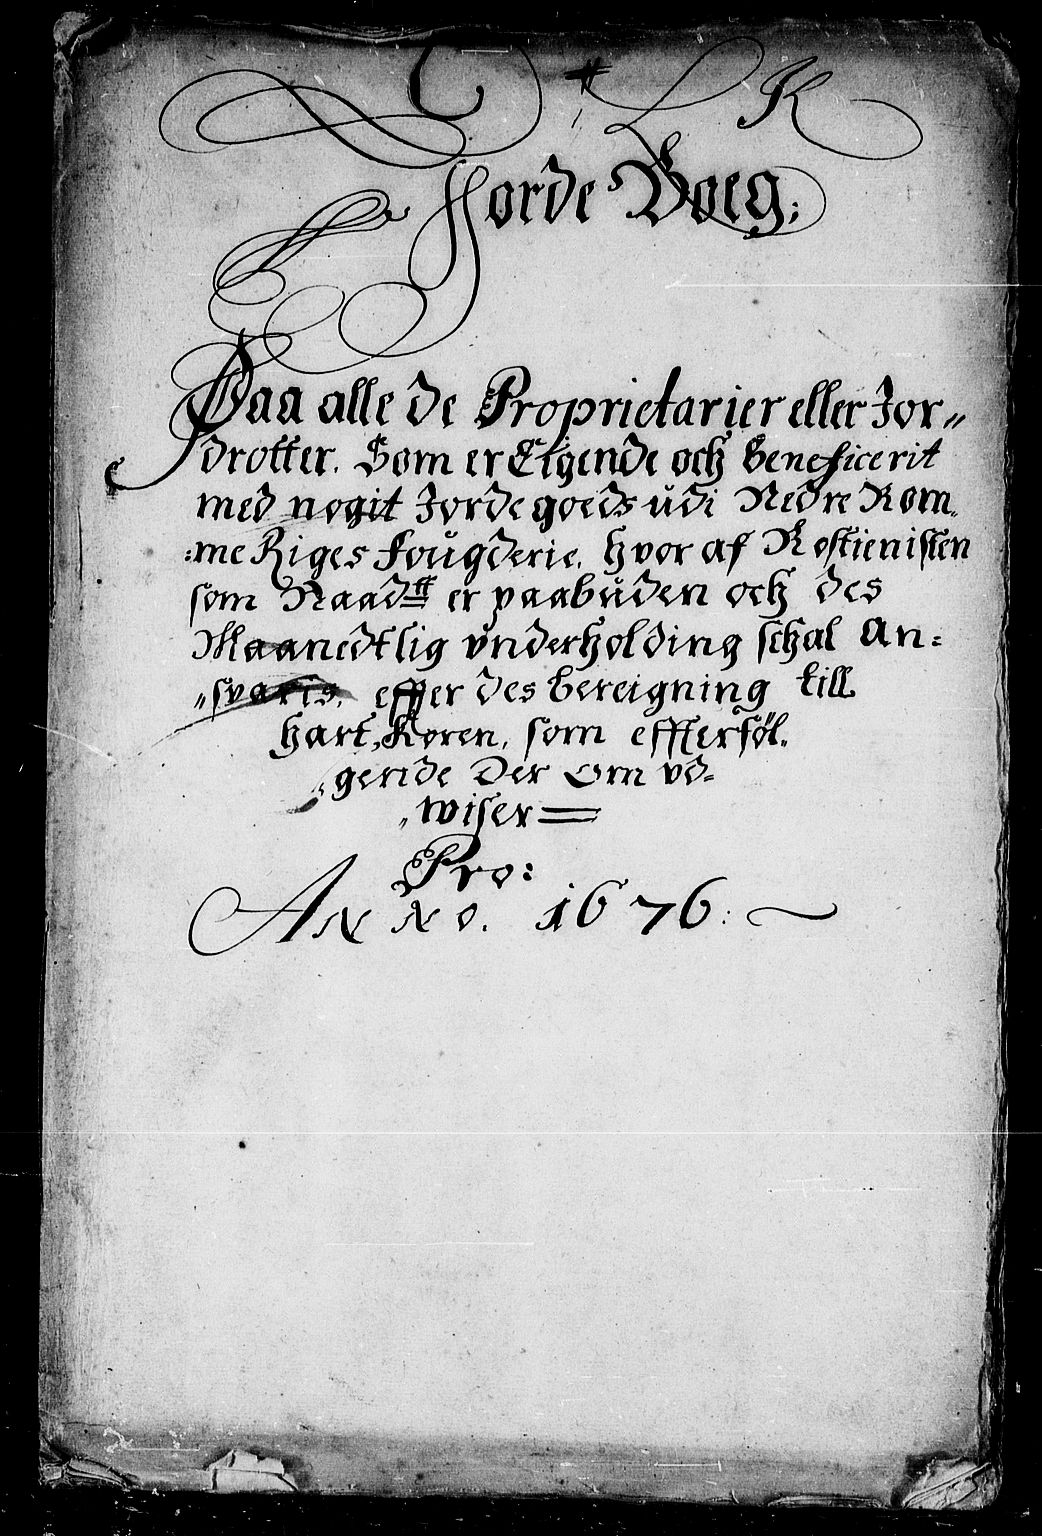 C # K
Jorde Boeg;
Paa alle de Proprietarier eller Jor„
drotter. Som er Eigende och beneficerit
med nogit Jordegoeds udi Nedre Rom„
:me Riges Fougderie, hvor af Rostienisten
som Naad er paabuden och des
Maanedtlig underholding schal An:
„svaris, effter des bereigning till
hart Koren, som effterføl„
„gende Der om vd„
„wiser
Pro:
ANNo. 1676: